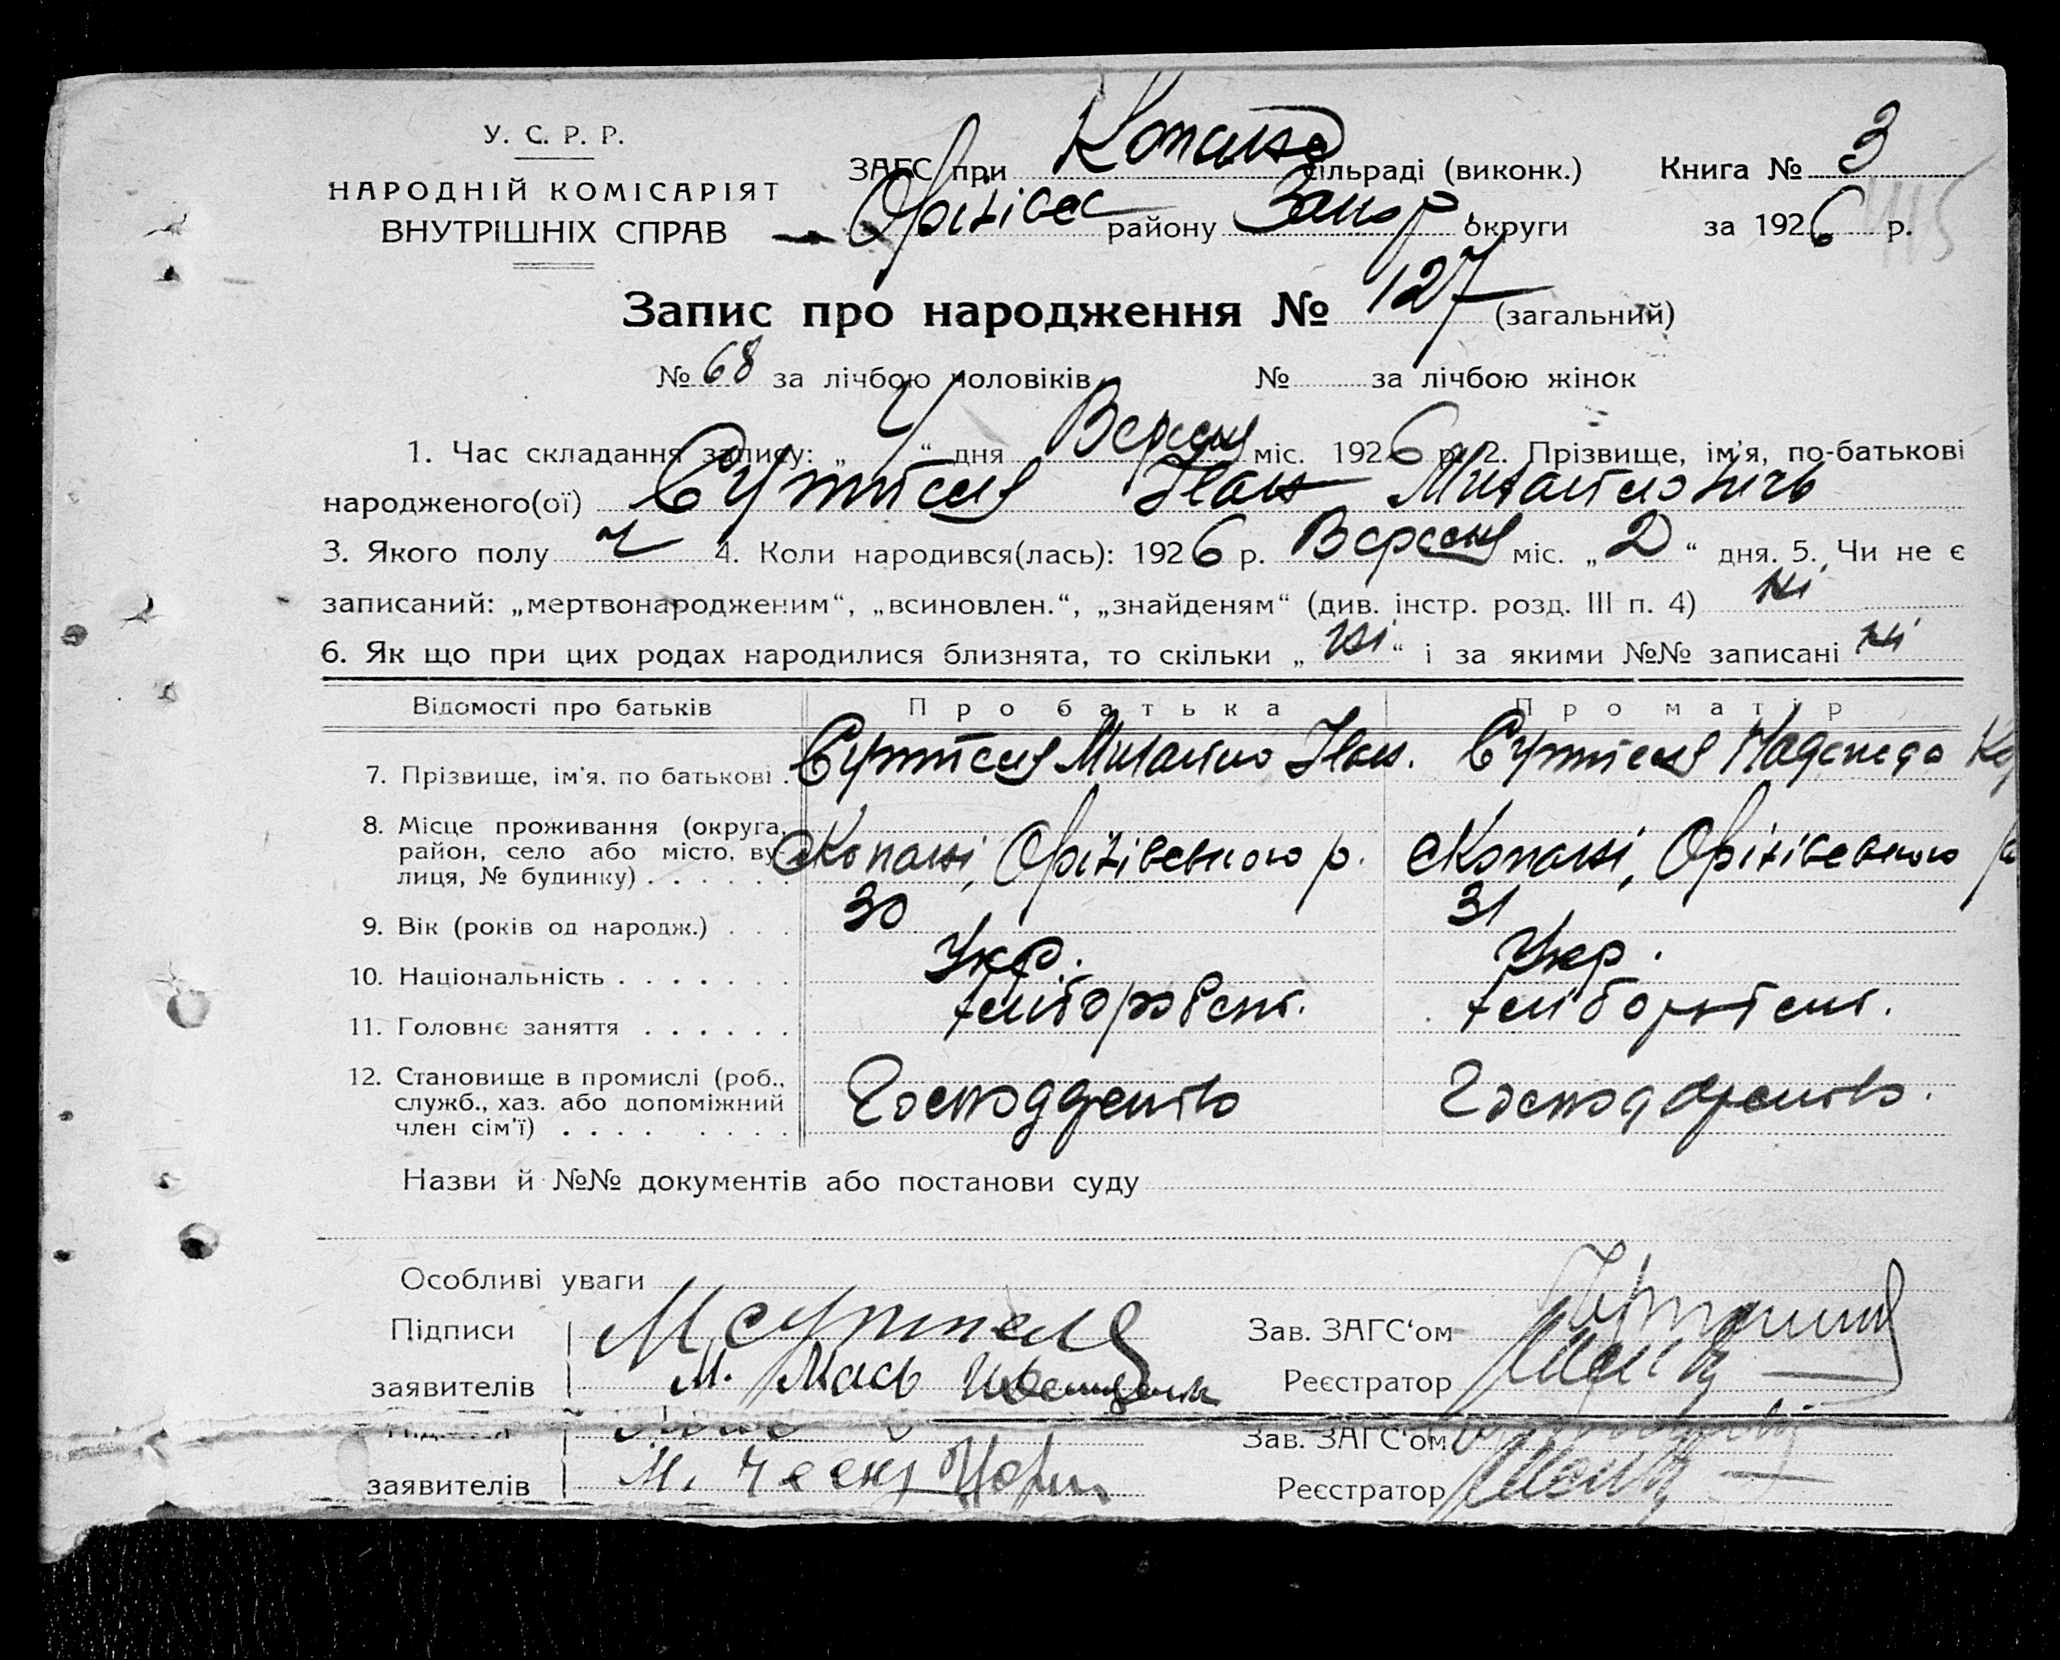 У. С. Р. Р.
НАРОДНІЙ КОМІСАРІЯТ
ВНУТРІШНІХ СПРАВ
ЗАГС при Копані сільраді (виконк.) Книга № 3
Оріхівск району Запор. округи за 1926 р.
415
Запис про народження № 127 (загальний)
№ 68 за лічбою чоловіків № за лічбою жінок
1. Час складання запису: „4“ дня Вересня міс. 1926 р. 2. Прізвище, ім'я, по-батькові
народженого(ої) Іван Михайловичь
3. Якого полу ч 4. Коли народився(лась): 1926 р. Вересня міс. „2“ дня. 5. Чи не є
записаний: „мертвонародженим“, „всиновлен.“, „знайденям“ (див. інстр. розд. III п. 4) ні
6. Як що при цих родах народилися близнята, то скільки „ні“ і за якими №№ записані ні
Відомості про батьків Про батька Про матір
7. Прізвище, ім'я, по батькові Михайло Іван. Надежда
8. Місце проживання (округа,
район, село або місто, ву-
лиця, № будинку) с Копані, Оріхівського р. с Копані, Оріхівського р
9. Вік (років од народж.) 30 31
10. Національність Укр. Укр.
11. Головне заняття хліборобст. хліборобст.
12. Становище в промислі (роб.,
служб., хаз. або допоміжний
член сім'ї)
Назви й №№ документів або постанови суду
Особливі уваги
Підписи Зав. ЗАГС'ом
заявителів М. Реєстратор
Зав. ЗАГС'ом
заявителів М. Реєстратор